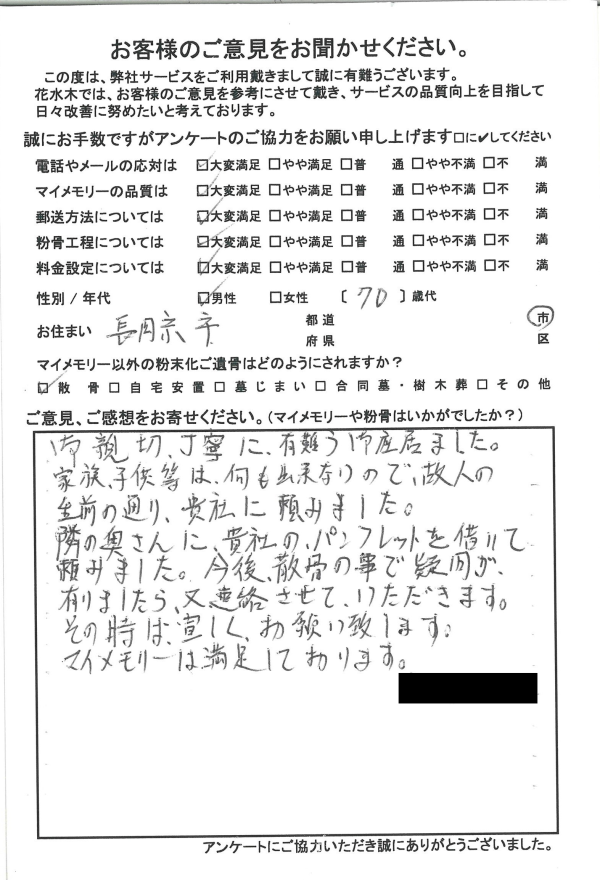 お客様のご意見をお聞かせください。
この度は、弊社サービスをご利用戴きまして誠に有難うございます。
花水木では、お客様のご意見を参考にさせて戴き、サービスの品質向上を目指して
日々改善に努めたいと考えております。
誠にお手数ですがアンケートのご協力をお願い申し上げます□に✔してください
電話やメールの応対は ☑大変満足 □やや満足 □普 通 □やや不満 □不 満
マイメモリーの品質は ☑大変満足 □やや満足 □普 通 □やや不満 □不 満
郵送方法については ☑大変満足 □やや満足 □普 通 □やや不満 □不 満
粉骨工程については ☑大変満足 □やや満足 □普 通 □やや不満 □不 満
料金設定については ☑大変満足 □やや満足 □普 通 □やや不満 □不 満
性別 / 年代 ☑男性 □女性 〔 70 〕歳代
お住まい 長岡京市 都道府県 市区
マイメモリー以外の粉末化ご遺骨はどのようにされますか?
☑散 骨 □自宅安置 □墓じまい □合同墓・樹木葬 □その他
ご意見、ご感想をお寄せください。(マイメモリーや粉骨はいかがでしたか?)
御親切、丁寧に、有難う御座居ました。
家族、子供等は、何も出来ないので、故人の
生前の通り、貴社に頼みました。
隣の奥さんに、貴社の、パンフレットを借りて
頼みました。今後、散骨の事で疑問が、
有りましたら、又連絡させて、いただきます。
その時は、宜しく、お願い致します。
マイメモリーは満足しております。
アンケートにご協力いただき誠にありがとうございました。